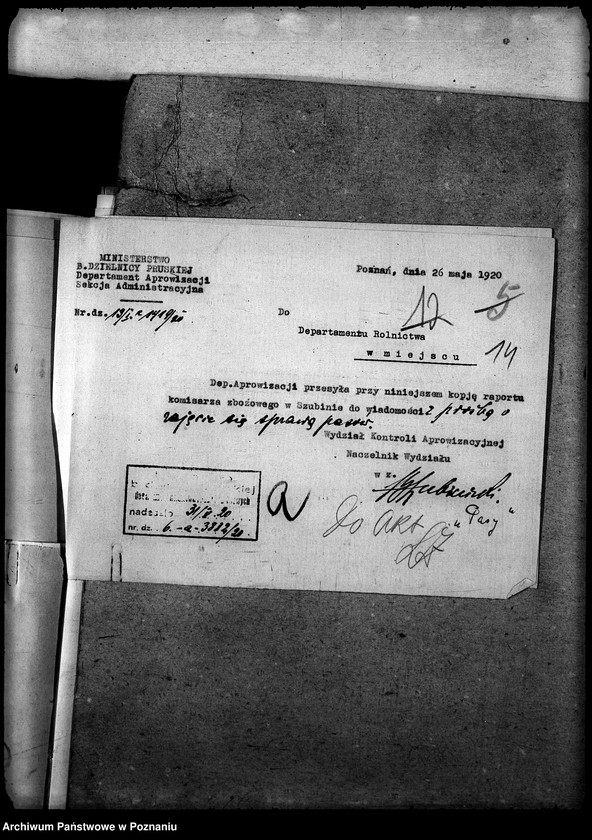 MINISTERSTWO
B.DZIELNICY PRUSKIEJ
Departament Aprowizacji
Sekcja Administracyjna
Nr.dz.
Poznań, dnia 26 maja 1920
12 5
Do
Departamentu Rolnictwa
w miejscu
14
Dep.Aprowizacji przesyła przy niniejszem kopję raportu
komisarza zbożowego w Szubinie do wiadomości z prośbą o
zajęcie się sprawą
Wydział Kontroli Aprowizacyjnej
Naczelnik Wydziału
w z.
nadeszło 31/V 20
nr. dz. 6.-a-3882/20
a
Do akt
Archiwum Państwowe w Poznaniu